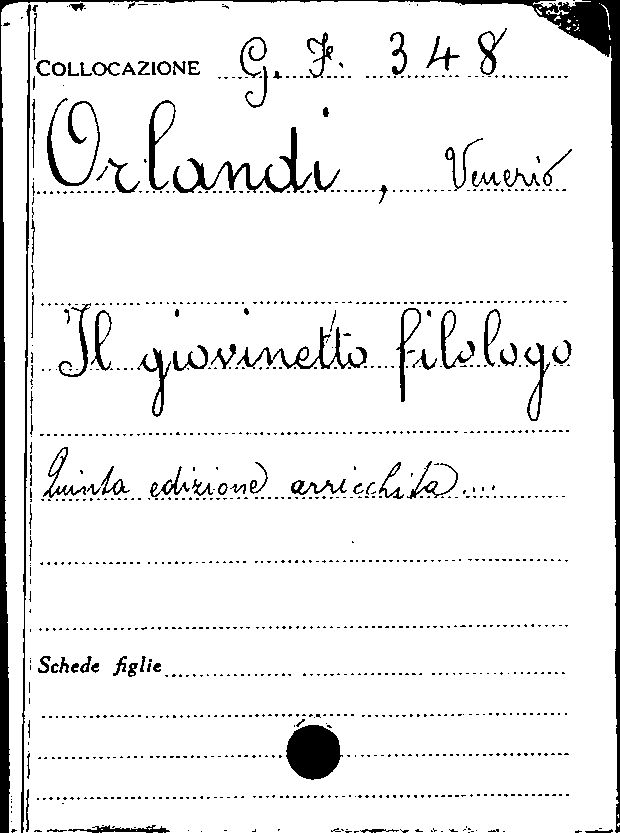 COLLOCAZIONE G. F. 348
Orlandi, Venerio
Il giovinetto filologo
Quinta edizione arricchita....
Schede figlie